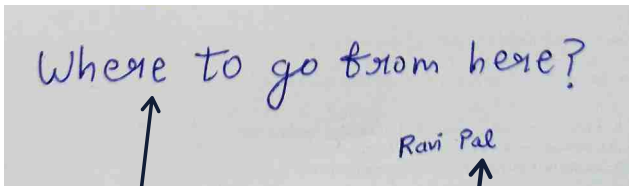 Where to go from here?
Ravi Pal